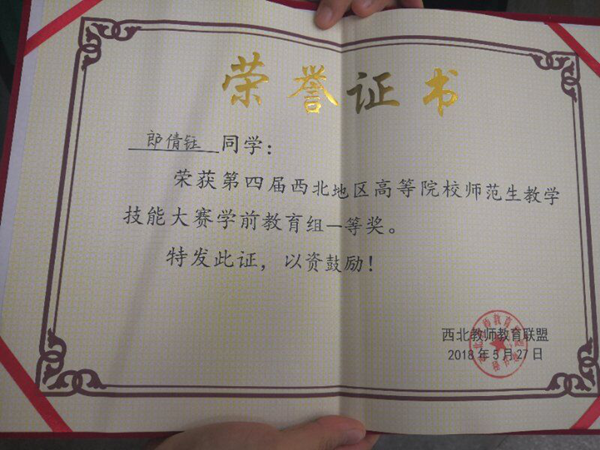 荣誉证书
郎倩钰 同学：
荣获第四届西北地区高等院校师范生教学
技能大赛学前教育组一等奖。
特发此证，以资鼓励！
西北教师教育联盟
2018年5月27日